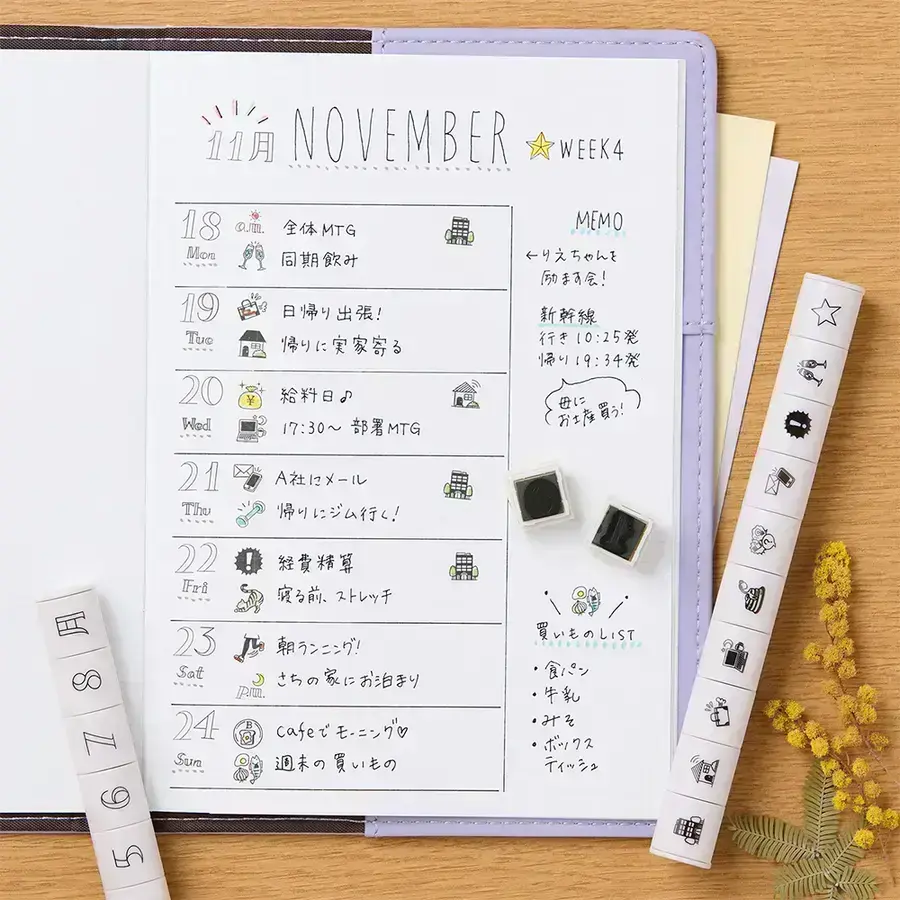 11月 NOVEMBER WEEK4
18 a.m. 全体MTG
Mon 同期飲み
19 日帰り出張!
Tue 帰りに実家寄る
20 ¥ 給料日♪
Wed 17:30〜 部署MTG
21 A社にメール
Thu 帰りにジム行く!
22 ! 経費精算
Fri 寝る前、ストレッチ
23 朝ランニング!
Sat p.m. さちの家にお泊まり
24 B Cafeでモーニング♡
Sun 週末の買いもの
MEMO
←りえちゃんを
励ます会!
新幹線
行き10:25発
帰り19:34発
母に
お土産買う!
買いものLIST
・食パン
・牛乳
・みそ
・ボックス
ティッシュ
月
8
7
6
5
!